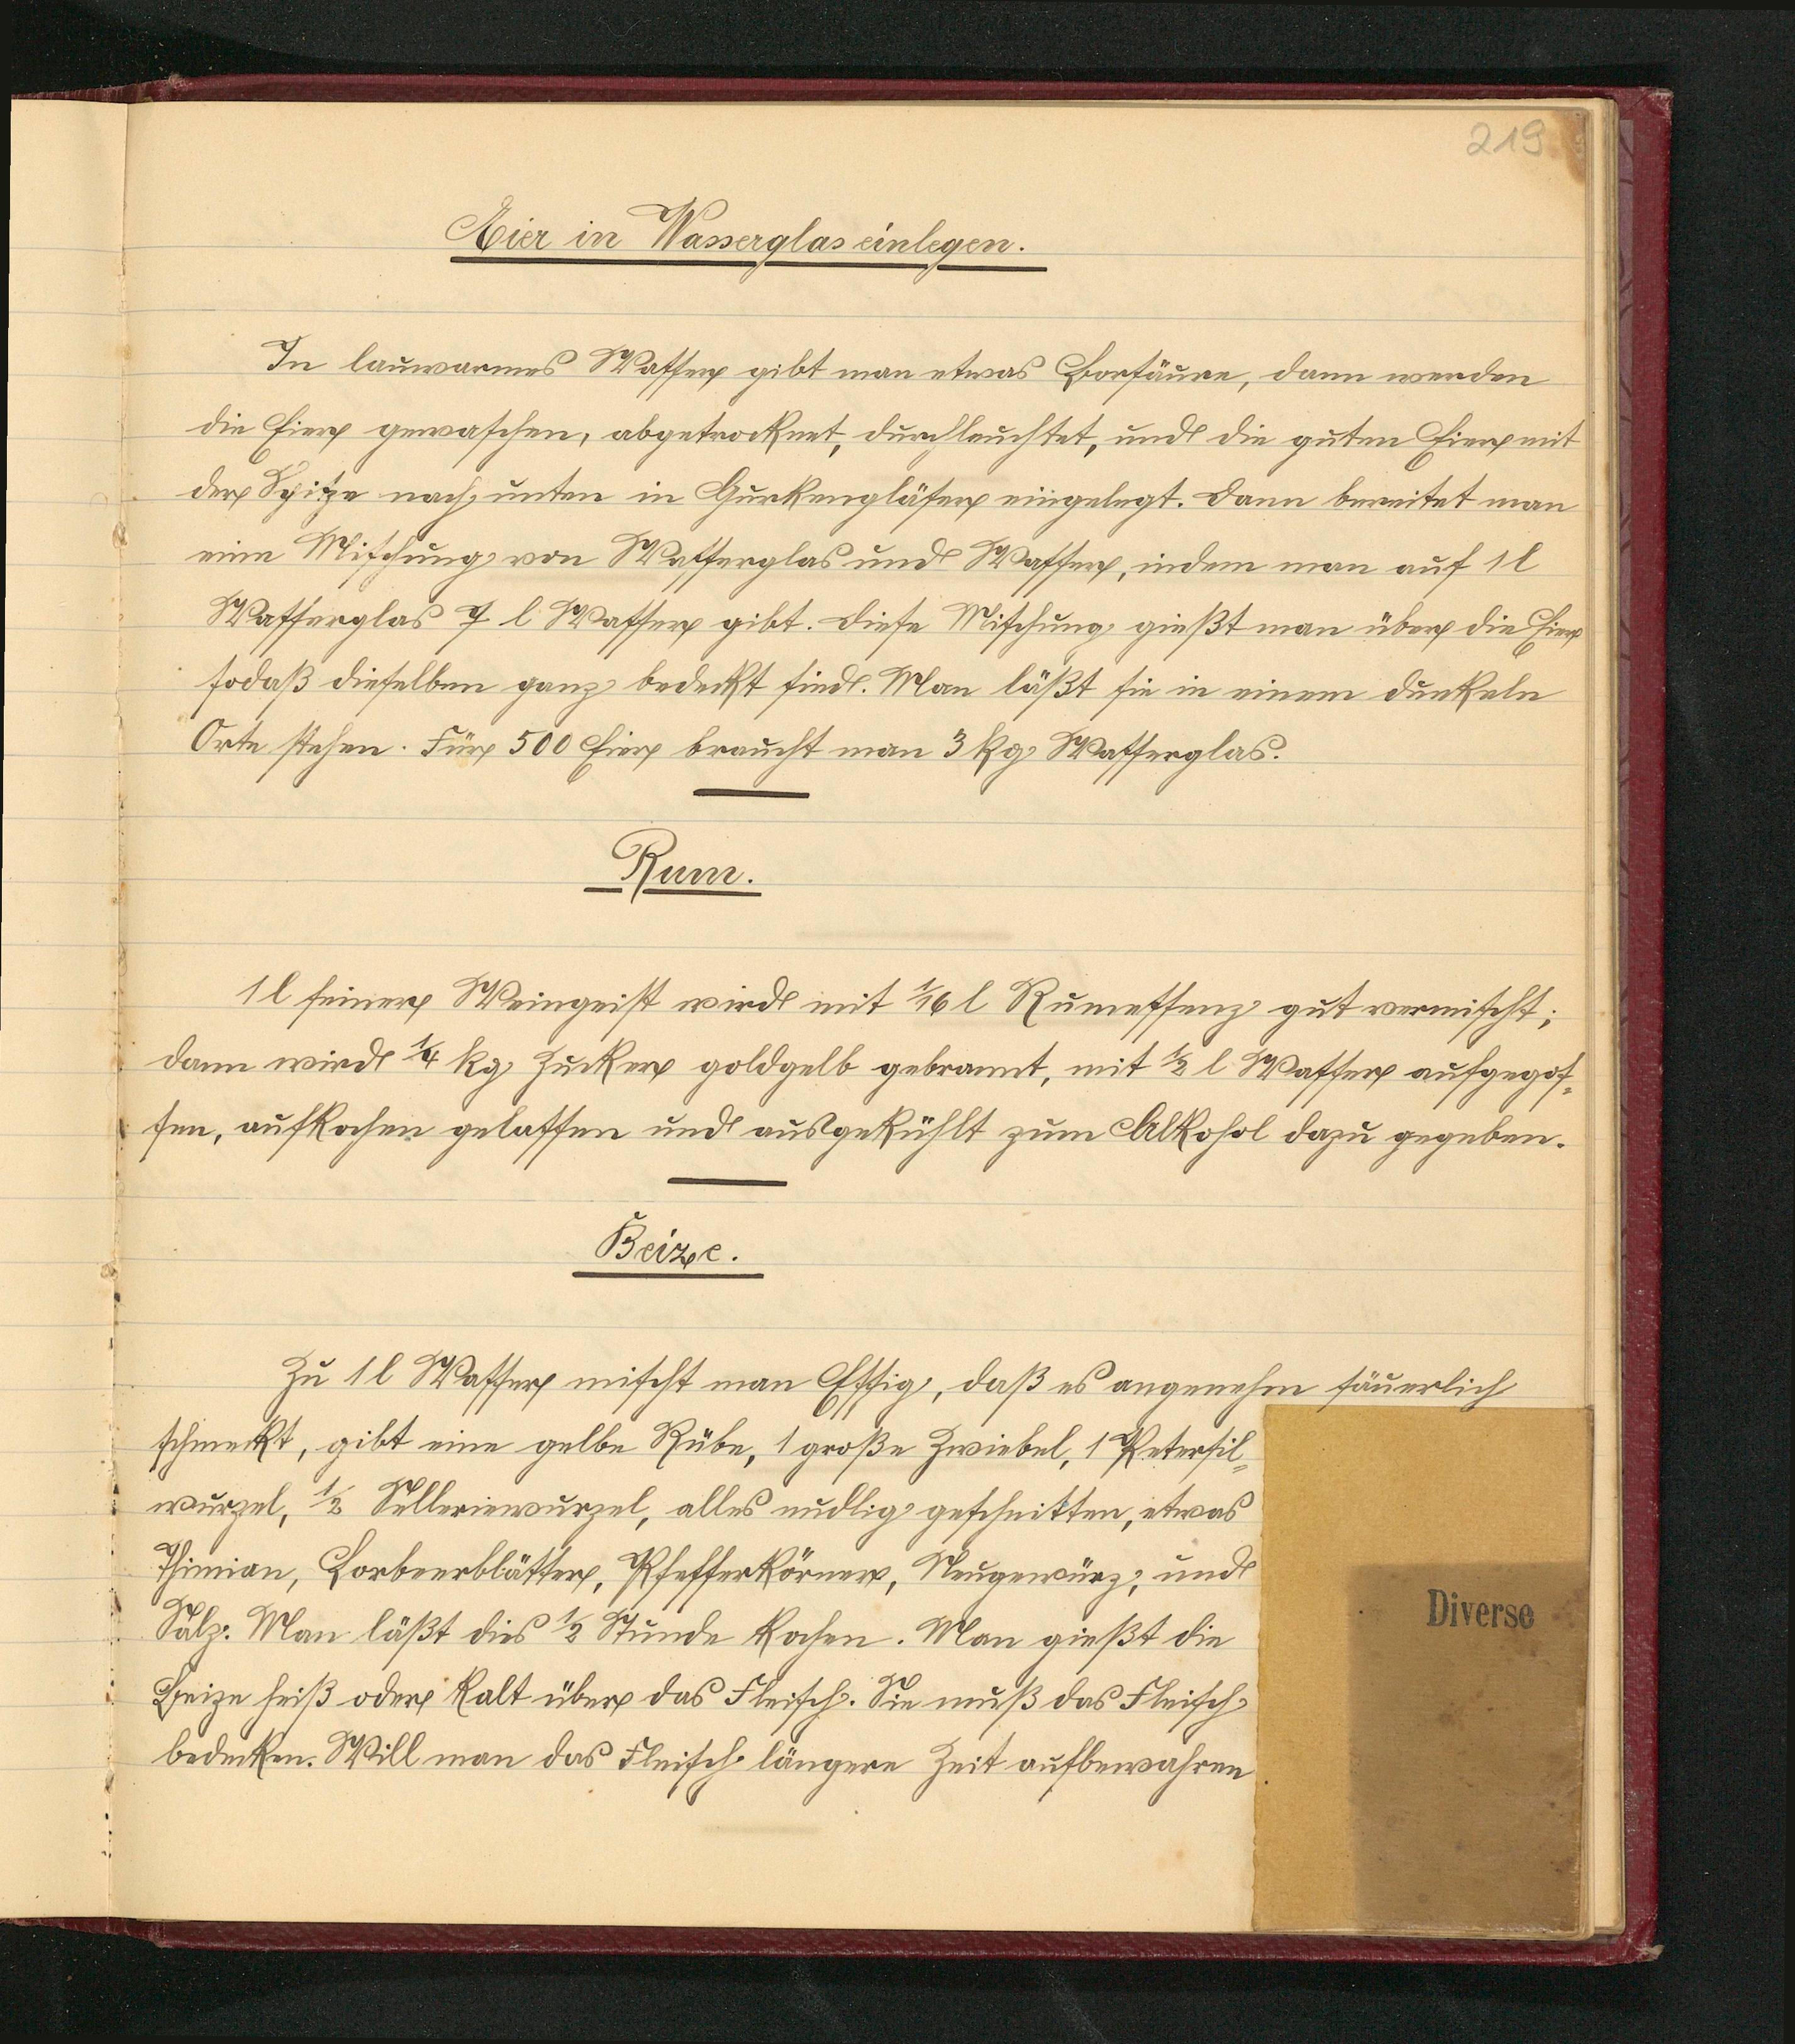 219
Eier in Wasserglas einlegen.
In lauwarmes Wasser gibt man etwas Borsäure, dann werden
die Eier gewaschen, abgetrocknet, durchleuchtet, und die guten Eier mit
der Spitze nach unten in Gurkengläser eingelegt. Dann bereitet man
eine Mischung von Wasserglas und Wasser, indem man auf 1 l
Wasserglas 7 l Wasser gibt. Diese Mischung gießt man über die Eier
sodaß dieselben ganz bedeckt sind. Man läßt sie in einem dunkeln
Orte stehen. Für 500 Eier braucht man 3 kg Wasserglas.
Rum.
1 l feiner Weingeist wird mit 1/16 l Rumessenz gut vermischt;
dann wird 1/4 kg Zucker goldgelb gebrannt, mit 1/2 l Wasser aufgegos=
sen, aufkochen gelassen und ausgekühlt zum Alkohol dazu gegeben.
Beize.
Zu 1 l Wasser mischt man Essig, daß es angenehm säuerlich
schmeckt, gibt eine gelbe Rübe, 1 große Zwiebel, 1 Petersil=
wurzel, 1/2 Selleriewurzel, alles nudlig geschnitten, etwas
Thimian, Lorbeerblätter, Pfefferkörner, Neugewürz, und
Salz. Man läßt dies 1/2 Stunde kochen. Man gießt die
Beize heiß oder kalt über das Fleisch. Sie muß das Fleisch
bedecken. Will man das Fleisch längere Zeit aufbewahren
Diverse